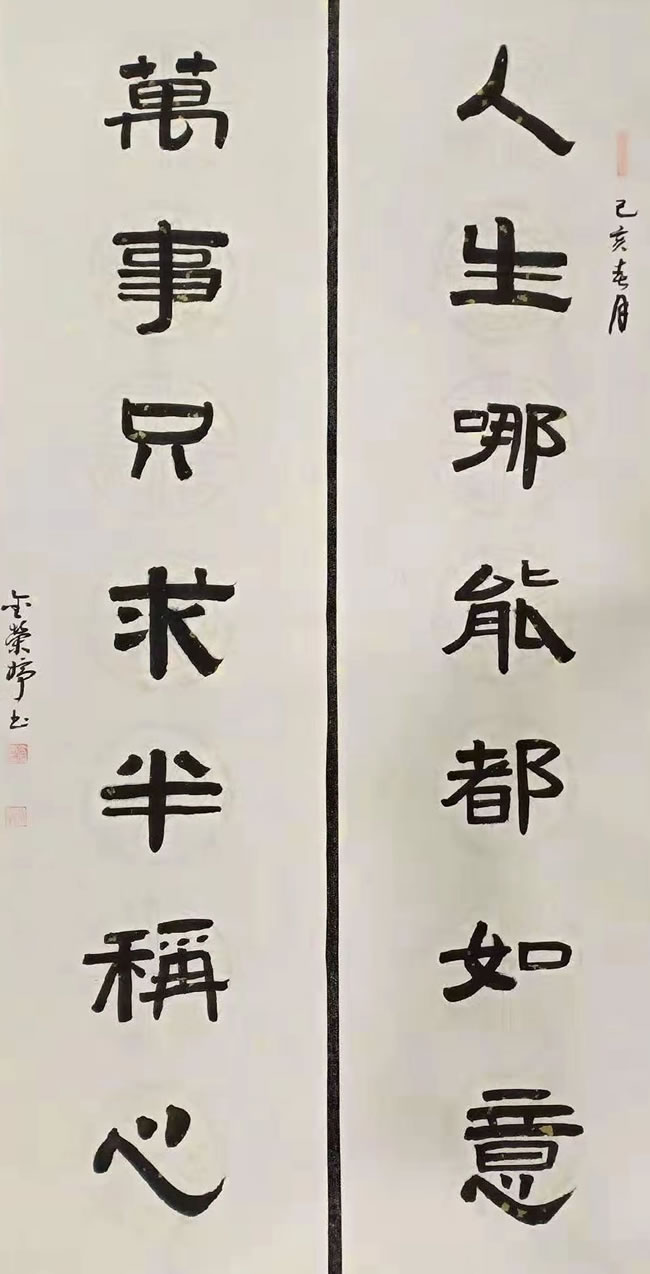 己亥春月
人生哪能都如意
萬事只求半稱心
金榮婷书